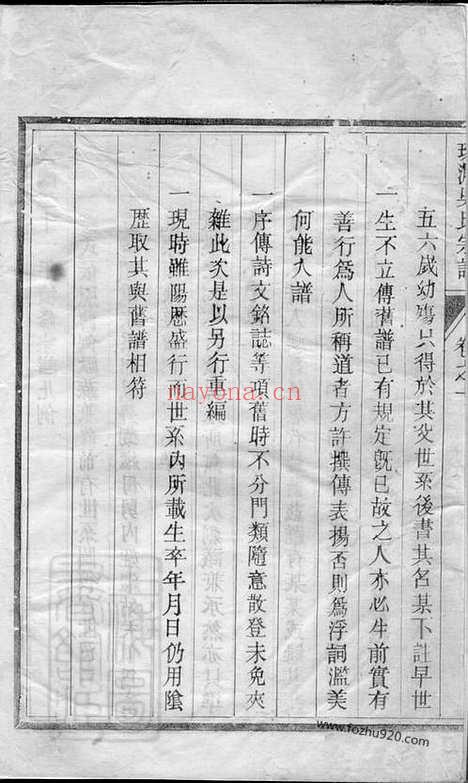 五六歲幼殤只得於其父世系後書其名某下註早世
一生不立傳舊譜已有規定旣已故之人亦必生前實有
善行爲人所稱道者方許撰傳表揚否則爲浮詞濫美
何能入譜
一序傳詩文銘誌等項舊時不分門類隨意散登未免夾
雜此次是以另行重編
一現時雖陽歷盛行而世系內所載生卒年月日仍用陰
歷取其與舊譜相符
nayona.cn
www.fozhu920.com